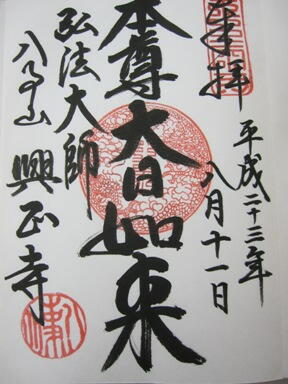 奉拝
平成二十三年
八月十一日
本尊大日如来
弘法大師
八事山 興正寺